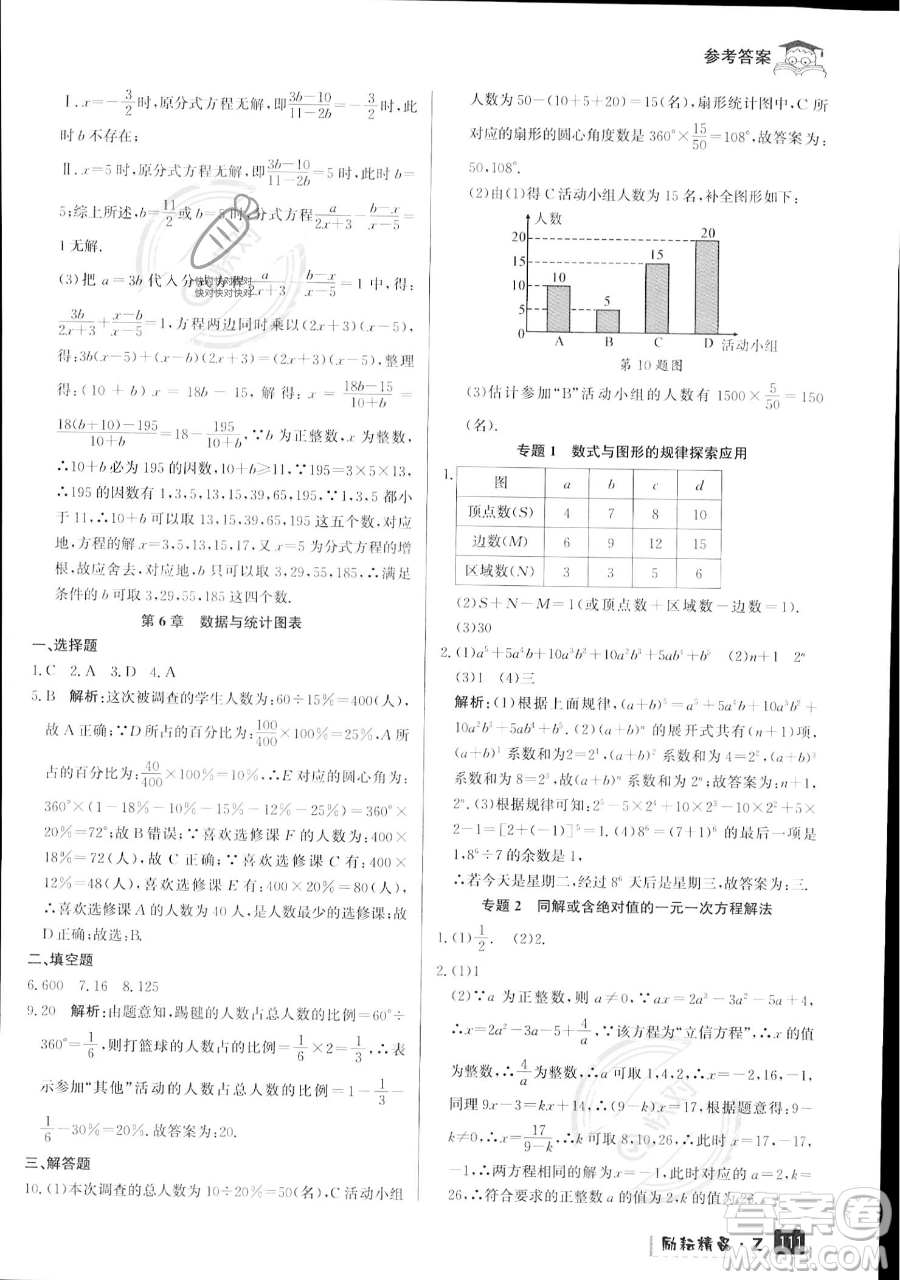 参考答案
Ⅰ. x=-3/2时,原分式方程无解,即(3b-10)/(11-2b)=-3/2时,此
时b不存在;
Ⅱ. x=5时,原分式方程无解,即(3b-10)/(11-2b)=5时,b=
5;综上所述,b=11/2或b=5时,分式方程a/(2x+3)-(b-x)/(x-5)=
1无解.
(3)把a=3b代入分式方程a/(2x+3)-(b-x)/(x-5)=1,得:
3b/(2x+3)+(x-b)/(x-5)=1,方程两边同时乘以(2x+3)(x-5),
得:3b(x-5)+(x-b)(2x+3)=(2x+3)(x-5),整理
得:(10+b)x=18b-15,解得:x=(18b-15)/(10+b)=
(18(b+10)-195)/(10+b)=18-195/(10+b),∵b为正整数,x为整数,
∴10+b必为195的因数,10+b≥11,∵195=3×5×13,
∴195的因数有1,3,5,13,15,39,65,195,1,3,5都小
于11,∴10+b可以取13,15,39,65,195这五个数,对应
地,方程的解x=3,5,13,15,17,又x=5为分式方程的增
根,故应舍去,对应地,b只可以取3,29,55,185,∴满足
条件的b可取3,29,55,185这四个数.
第6章 数据与统计图表
一、选择题
1.C 2.A 3.D 4.A
5.B 解析:这次被调查的学生人数为:60÷15%=400(人),
故A正确;∵D所占的百分比为:100/400×100%=25%,A所
占的百分比为:40/400×100%=10%,∴E对应的圆心角为:
360°×(1-18%-10%-15%-12%-25%)=360°×
20%=72°;故B错误;∵喜欢选修课F的人数为:400×
18%=72(人),故C正确;∵喜欢选修课C有:400×
12%=48(人),喜欢选修课E有:400×20%=80(人),∴
喜欢选修课A的人数为40人,是人数最少的选修课;故
D正确;故选:B.
二、填空题
6.600 7.16 8.125
9.20 解析:由题意知,踢毽的人数占总人数的比例=60°÷
360°=1/6,则打篮球的人数占的比例=1/6×2=1/3,∴表
示参加“其他”活动的人数占总人数的比例=1-1/3-
1/6-30%=20%.故答案为:20.
三、解答题
10.(1)本次调查的总人数为10÷20%=50(名),C活动小组
人数为50-(10+5+20)=15(名),扇形统计图中,C所
对应的扇形的圆心角度数是360°×15/50=108°,故答案为:
50,108°.
(2)由(1)得C活动小组人数为15名,补全图形如下:
人数
20 15 10 5
10 5 15 20
A B C D 活动小组
第10题图
(3)估计参加“B”活动小组的人数有1500×5/50=150
(名).
专题1 数式与图形的规律探索应用
1.
图 a b c d
顶点数(S) 4 7 8 10
边数(M) 6 9 12 15
区域数(N) 3 3 5 6
(2)S+N-M=1(或顶点数+区域数-边数=1).
(3)30
2.(1)a⁵+5a⁴b+10a³b²+10a²b³+5ab⁴+b⁵ (2)n+1 2ⁿ
(3)1 (4)三
解析:(1)根据上面规律,(a+b)⁵=a⁵+5a⁴b+10a³b²+
10a²b³+5ab⁴+b⁵.(2)(a+b)ⁿ的展开式共有(n+1)项,
(a+b)¹系数和为2=2¹,(a+b)²系数和为4=2²,(a+b)³
系数和为8=2³,故(a+b)ⁿ系数和为2ⁿ;故答案为:n+1,
2ⁿ.(3)根据规律可知:2⁵-5×2⁴+10×2³-10×2²+5×
2-1=[2+(-1)]⁵=1.(4)8⁶=(7+1)⁶的最后一项是
1,8⁶÷7的余数是1,
∴若今天是星期二,经过8⁶天后是星期三,故答案为:三.
专题2 同解或含绝对值的一元一次方程解法
1.(1)1/2. (2)2.
2.(1)1
(2)∵a为正整数,则a≠0,∵ax=2a³-3a²-5a+4,
∴x=2a²-3a-5+4/a,∵该方程为“立信方程”,∴x为
整数,∴4/a为整数,∴a可取1,4,2,∴x=-2,16,-1,
同理9x-3=kx+14,∴(9-k)x=17,根据题意得:9-
k≠0,∴x=17/(9-k),∴k可取8,10,26,∴x=17,-17,
-1,∴两方程均有相同的解x=-1,此时a=2,k=
26,∴符合要求的正整数a的值为2,k的值为26.
励耘精品·Z 111
快对快对快对
快对快对快对
快对
答案圈